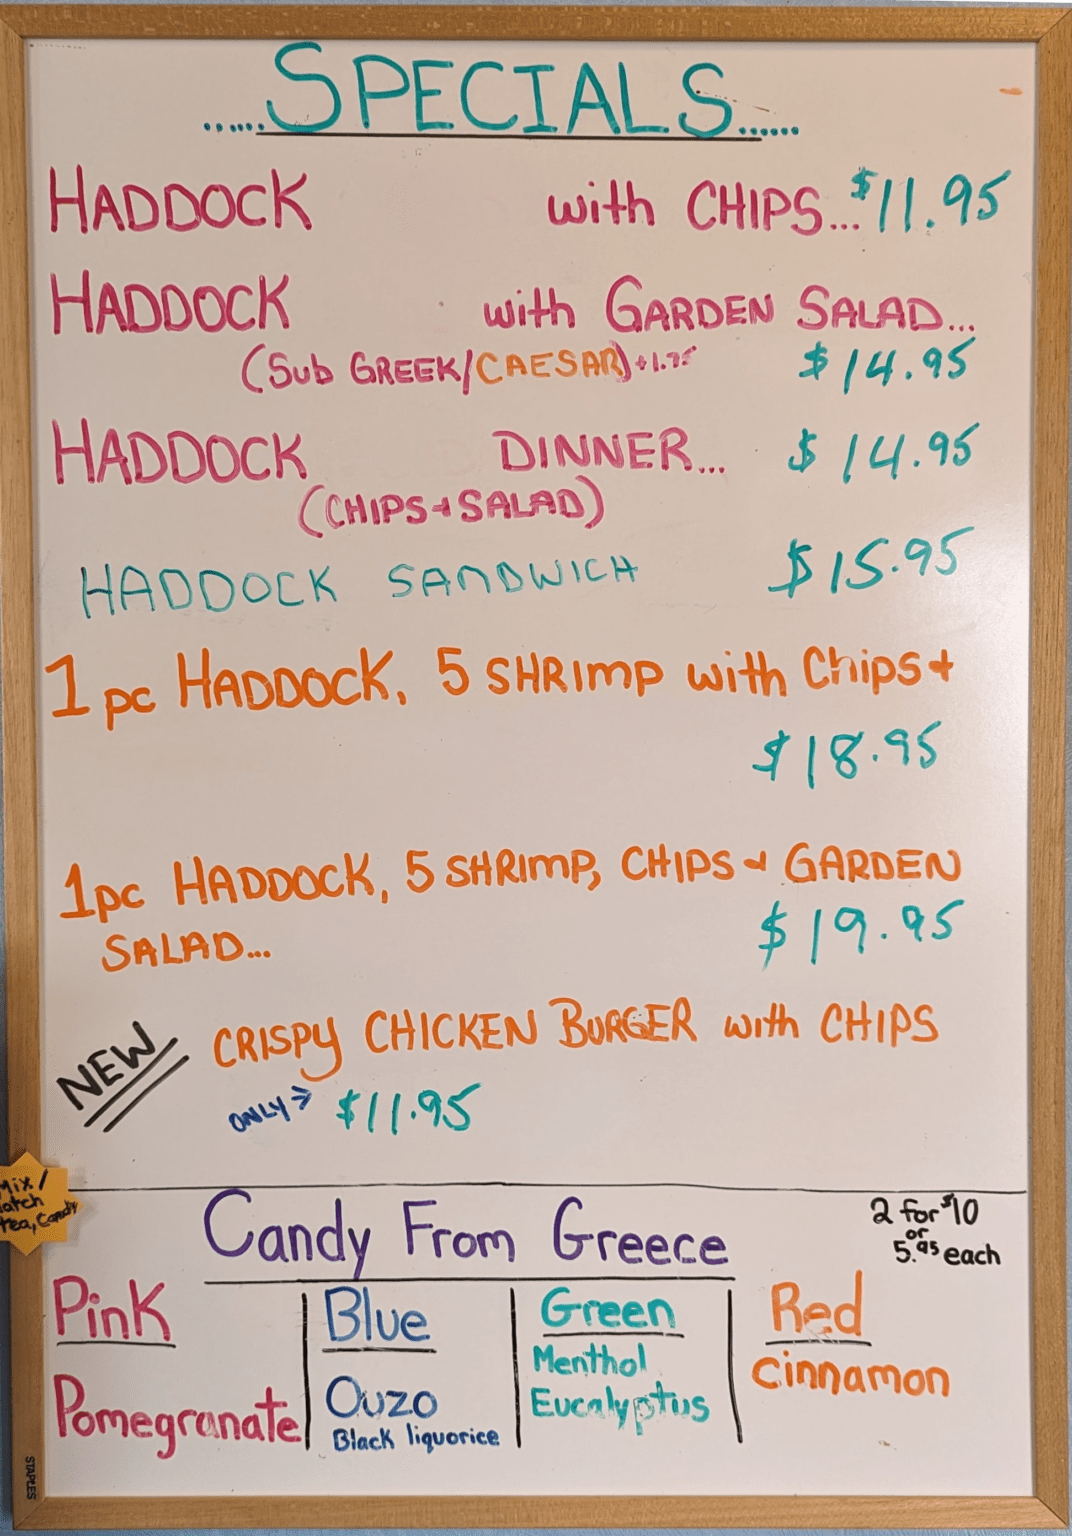 ......SPECIALS......
HADDOCK with CHIPS...$11.95
HADDOCK with GARDEN SALAD...
(Sub GREEK/CAESAR)+1.75 $14.95
HADDOCK DINNER... $14.95
(CHIPS+SALAD)
HADDOCK SANDWICH $15.95
1pc HADDOCK, 5 SHRIMP with Chips+
$18.95
1pc HADDOCK, 5 SHRIMP, CHIPS + GARDEN
SALAD... $19.95
NEW CRISPY CHICKEN BURGER with CHIPS
ONLY> $11.95
Mix/
atch
tea, Candy
Candy From Greece
2 for $10
or
5.95 each
Pink
Pomegranate
Blue
Ouzo
Black liquorice
Green
Menthol
Eucalyptus
Red
Cinnamon
STAPLES